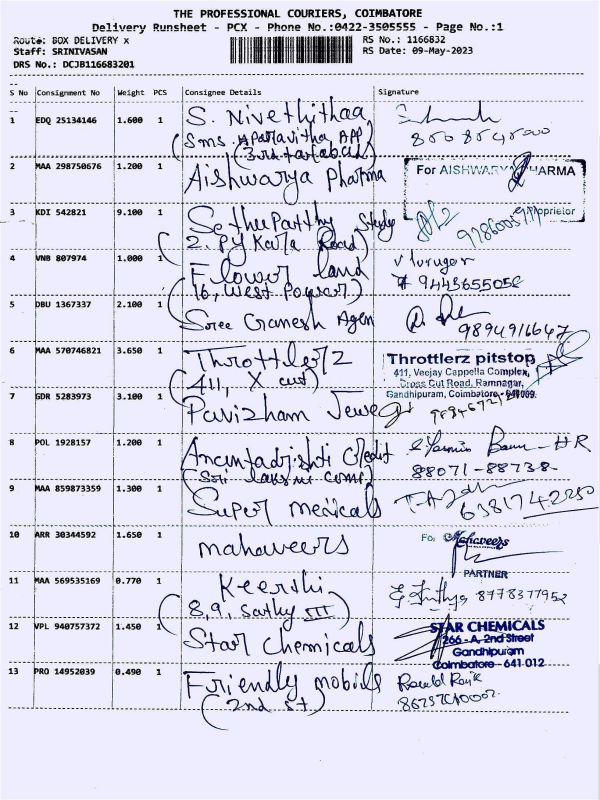 THE PROFESSIONAL COURIERS, COIMBATORE
Delivery Runsheet - PCX - Phone No.:0422-3505555 - Page No.:1
Route: BOX DELIVERY x
RS No.: 1166832
Staff: SRINIVASAN
RS Date: 09-May-2023
DRS No.: DCJB116683201
S No Consignment No Weight PCS Consignee Details Signature
1 EDQ 25134146 1.600 1 S. Nivethithaa
(Sms. Aparavitha APP
(3rd
2 MAA 298750676 1.200 1 Aishwarya Pharma
For AISHWARYA PHARMA
Proprietor
3 KDI 542821 9.100 1 Sethupatthy Study
(2. Road)
4 VNB 807974 1.000 1 Flower land
(16, West Power)
9443655052
5 DBU 1367337 2.100 1 Sree Ganesh Agen
9894916647
6 MAA 570746821 3.650 1 Throttlerz
(411, X cut)
Throttlerz pitstop
411, Veejay Cappella Complex,
Cross Cut Road, Ramnagar,
Gandhipuram, Coimbatore - 641009.
7 GDR 5283973 3.100 1 Pavizham Jewe
8 POL 1928157 1.200 1 Anantadrishti Credit
(Sri Laksmi comp)
Banu - HR
88071-88738
9 MAA 859873359 1.300 1 Super medicals
6381742250
10 ARR 30344592 1.650 1 mahaveers
For Mahaveers
PARTNER
11 MAA 569535169 0.770 1 Keerthi
(8,9, Sathy III)
8778377952
12 VPL 940757372 1.450 1 Star chemicals
STAR CHEMICALS
266 - A, 2nd Street
Gandhipuram
Coimbatore - 641 012
13 PRO 14952039 0.490 1 Friendly mobils
(2nd st)